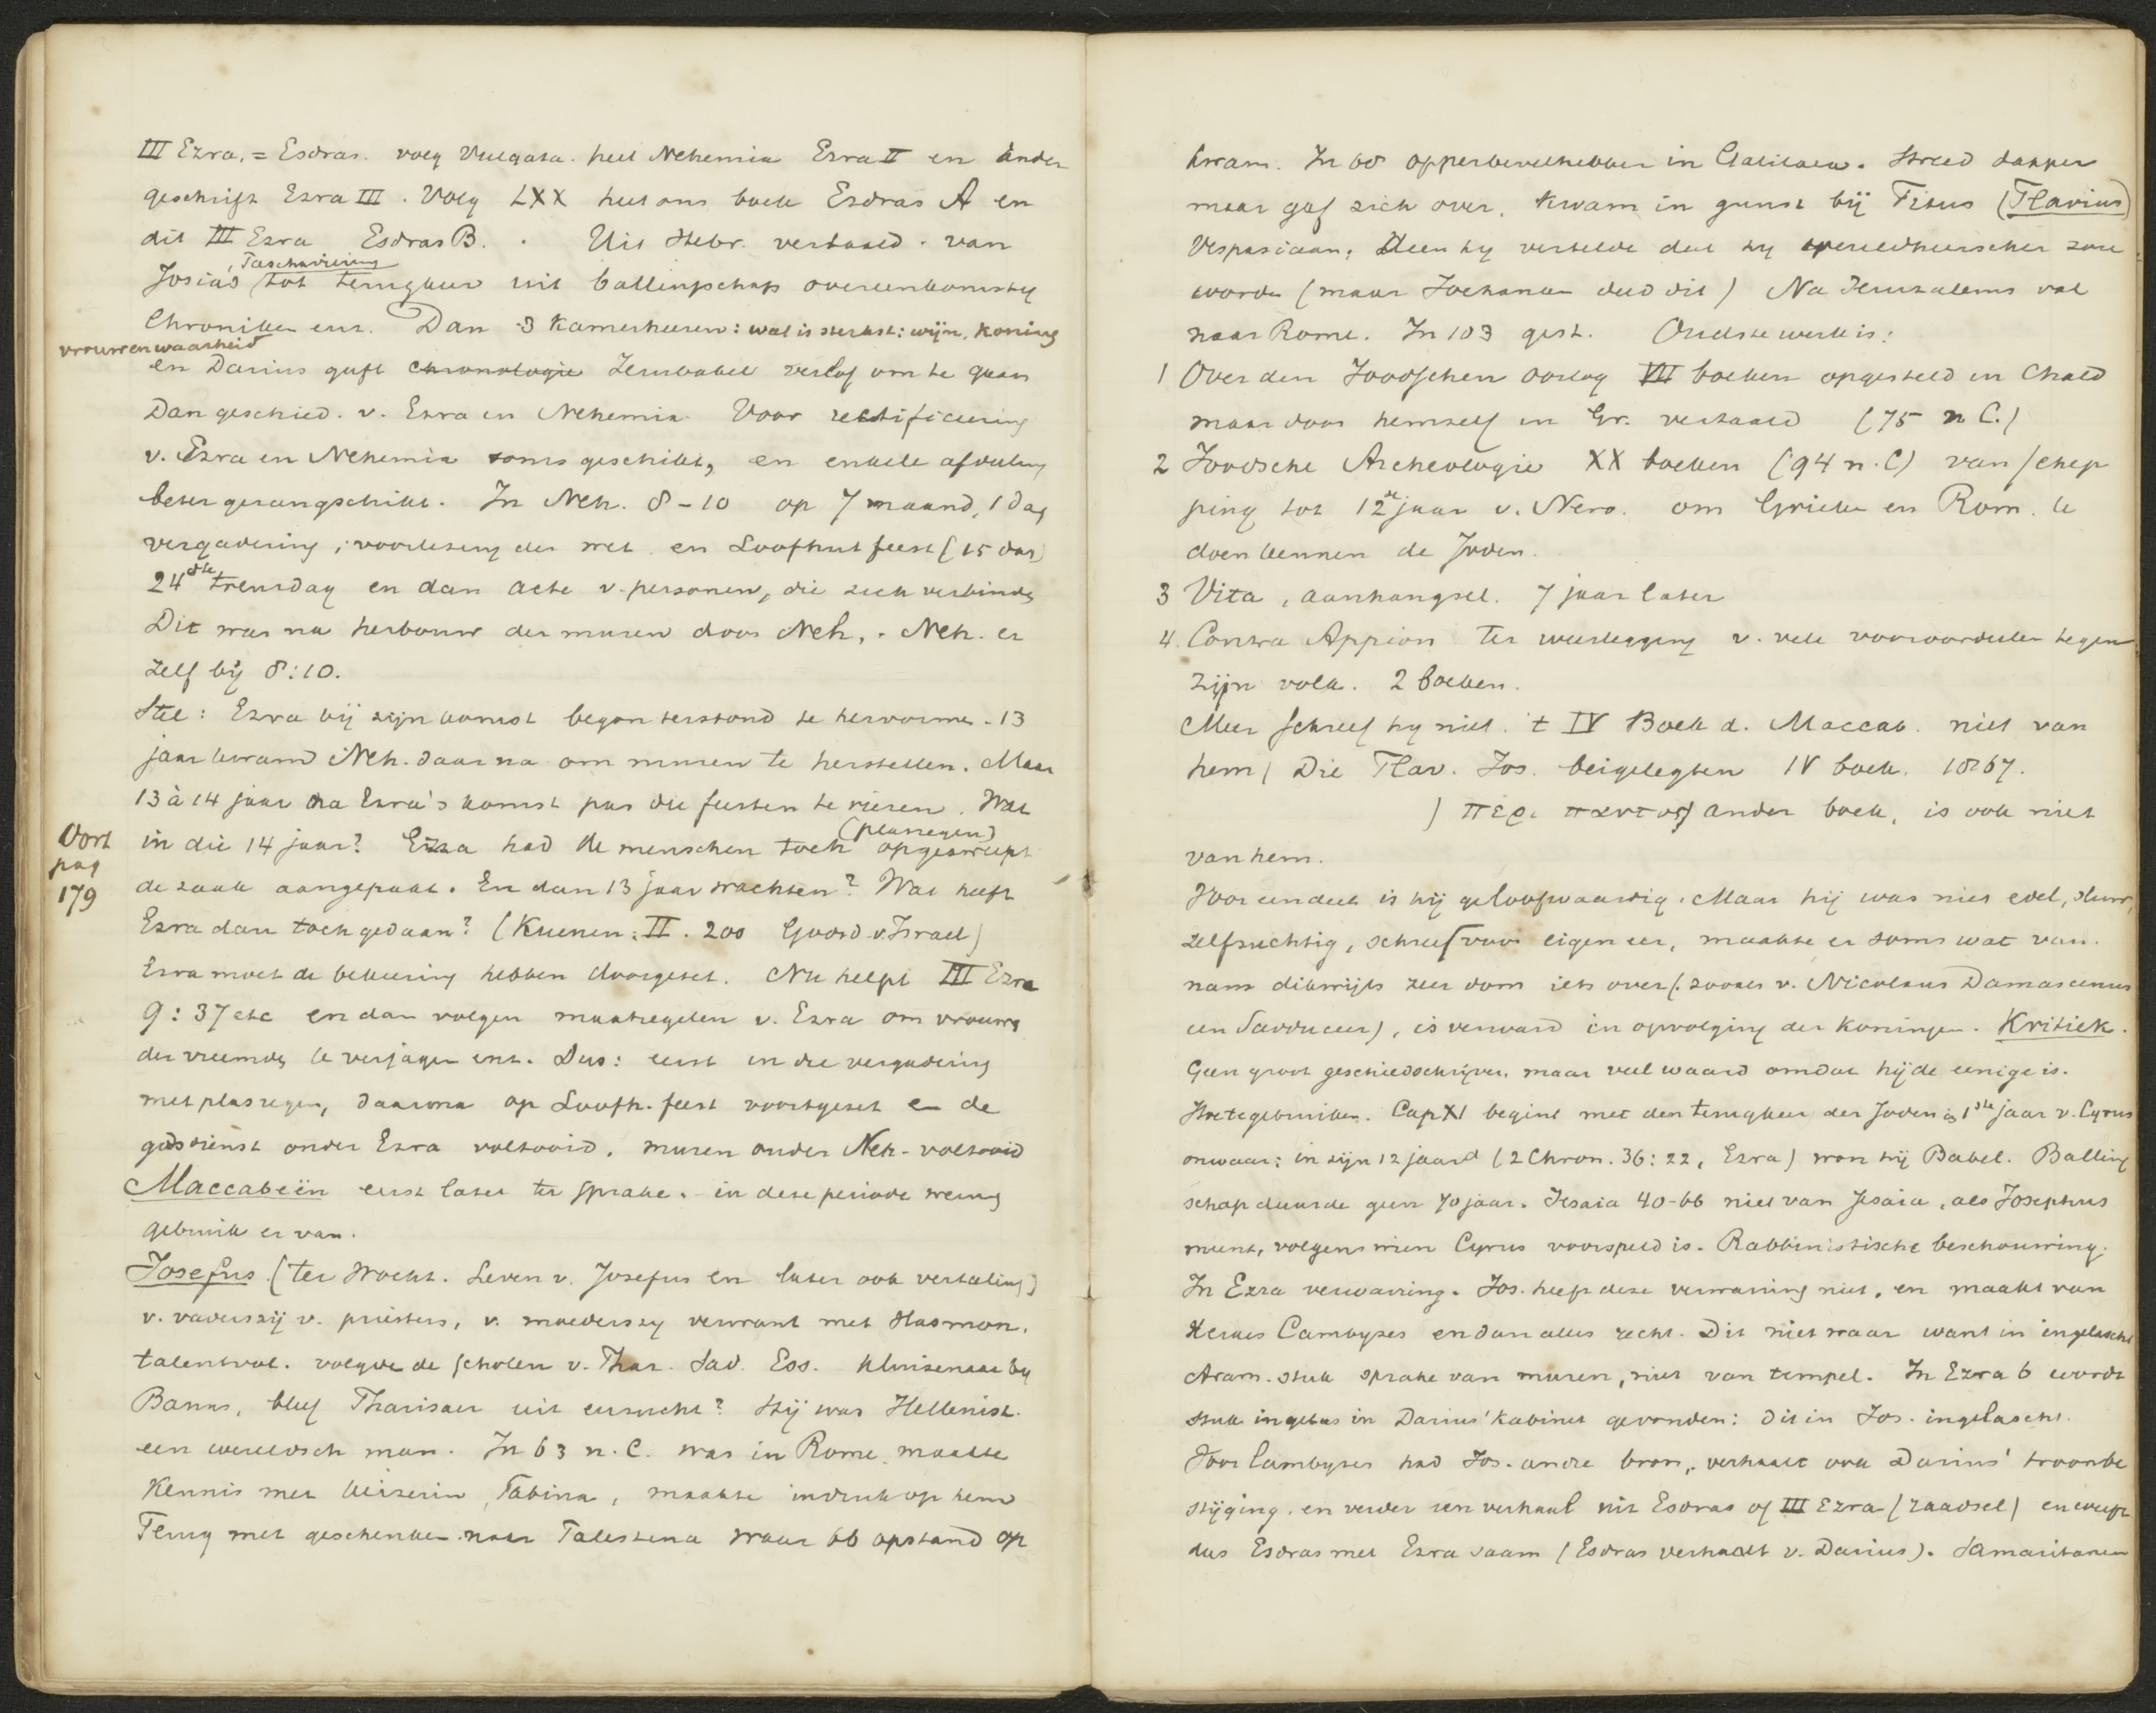 III Ezra, = Esdras. volg Vulgata. heet Nehemia Ezra II en ander
geschrift Ezra III. Volg LXX heet ons boek Esdras A en
dit III Ezra Esdras B. . Uit Hebr. vertaald. van
, Paschaviering
Josias tot terugkeer uit ballingschap overeenkomstig
Chroniken enz. Dan 3 kamerheeren: wat is sterkst: wijn, koning
vrouw en waarheid
en Darius geeft chronologie Zerubabel verlof om te gaan
Dan geschied. v. Ezra en Nehemia. Voor rectificeering
v. Ezra en Nehemia soms geschikt, en enkele afdeeling
beter gerangschikt. In Neh. 8-10 op 7 maand, 1 dag
vergadering; voorlezing der wet en Loofhutfeest (15 dag)
24ste treurdag en dan acte v. personen, die zich verbinden
Dit was na herbouw der muren door Neh,. Neh. er
zelf bij 8:10.
Stel: Ezra bij zijn komst begon terstond te hervormen. 13
jaar kwam Neh. daarna om muren te herstellen. Maar
13 à 14 jaar na Ezra's komst pas die feesten te vieren. Wat
(plasregen)
in die 14 jaar? Ezra had de menschen toch opgewekt
Vort
pag
179
de zaak aangepakt. En dan 13 jaar wachten? Wat heeft
Ezra dan toch gedaan? (Kuenen: II. 200 Godsd. v. Israel)
Ezra moet de bekeering hebben doorgezet. Nu helpt III Ezra
9:37 etc en dan volgen maatregelen v. Ezra om vrouwen
der vreemden te verjagen enz. Dus: eerst in die vergadering
met plasregen, daarna op Loofh. feest voortgezet en de
godsdienst onder Ezra voltooid, muren onder Neh. voltooid
Maccabeën eerst later ter sprake. in deze periode weinig
gebruik er van.
Josefus (ter Mocht. Leven v. Josefus en later ook vertaling)
v. vaderszij v. priesters, v. moederszij verwant met Hasmon.
talentvol. volgde de scholen v. Phar. Sad. Ess. kluizenaar bij
Banus, bleef Pharisaer uit eerzucht? Hij was Hellenist.
een wereldsch man. In 63 n. C. was in Rome, maakte
kennis met keizerin Sabina, maakte indruk op hem
Terug met geschenken naar Palestina waar 66 opstand op
kwam. In 68 opperbevelhebber in Galilaea. Streed dapper
maar gaf zich over, kwam in gunst bij Titus (Flavius)
Vespasiaan, deen hij vertelde dat hij wereldheerscher zou
worden (maar Jochanan deed dit) Na Jeruzalems val
naar Rome. In 103 gest. Oudste werk is:
1 Over den Joodschen oorlog VII boeken opgesteld in Chald
maar door hemzelf in Gr. vertaald (75 n C.)
2 Joodsche Archeologie XX boeken (94 n. C) van schep
ping tot 12de jaar v. Nero. om Grieken en Rom. te
doen kennen de Joden.
3 Vita, aanhangsel. 7 jaar later
4. Contra Appion ter weerlegging v. vele vooroordeelen tegen
zijn volk. 2 boeken.
Meer schreef hij niet. 't IV Boek d. Maccab. niet van
hem / Die Flav. Jos. beigelegten IV boek. 1867.
) περι παντος ander boek, is ook niet
van hem.
Voor een deel is hij geloofwaardig. Maar hij was niet edel, sluw,
zelfzuchtig, schreef voor eigen eer, maakte er soms wat van.
nam dikwijls zeer dom iets over (. zooals v. Nicolaus Damascenus
een Sadduceer), is verward in opvolging der koningen. Kritiek.
Geen groot geschiedschrijver, maar veel waard omdat hij de eenige is.
Cap XI begint met den terugkeer der Joden in 1ste jaar v. Cyrus
onwaar: in zijn 12 jaar (2 Chron. 36:22, Ezra) won hij Babel. Balling
schap duurde geen 70 jaar. Jesaia 40-66 niet van Jesaia, als Josephus
meent, volgens wien Cyrus voorspeld is. Rabbinistische beschouwing.
In Ezra verwarring. Jos. heeft deze verwarring niet, en maakt van
Xerxes Cambyses en dan alles recht. Dit niet waar want in ingelascht
Aram. stuk sprake van muren, niet van tempel. In Ezra 6 wordt
stuk in Darius' kabinet gevonden: dit in Jos. ingelascht.
Voor Cambyses had Jos. andre bron, verhaalt ook Darius' troonbe
stijging. en verder een verhaal uit Esdras of III Ezra (raadsel) en werpt
dus Esdras met Ezra saam (Esdras verhaalt v. Darius). Samaritanen